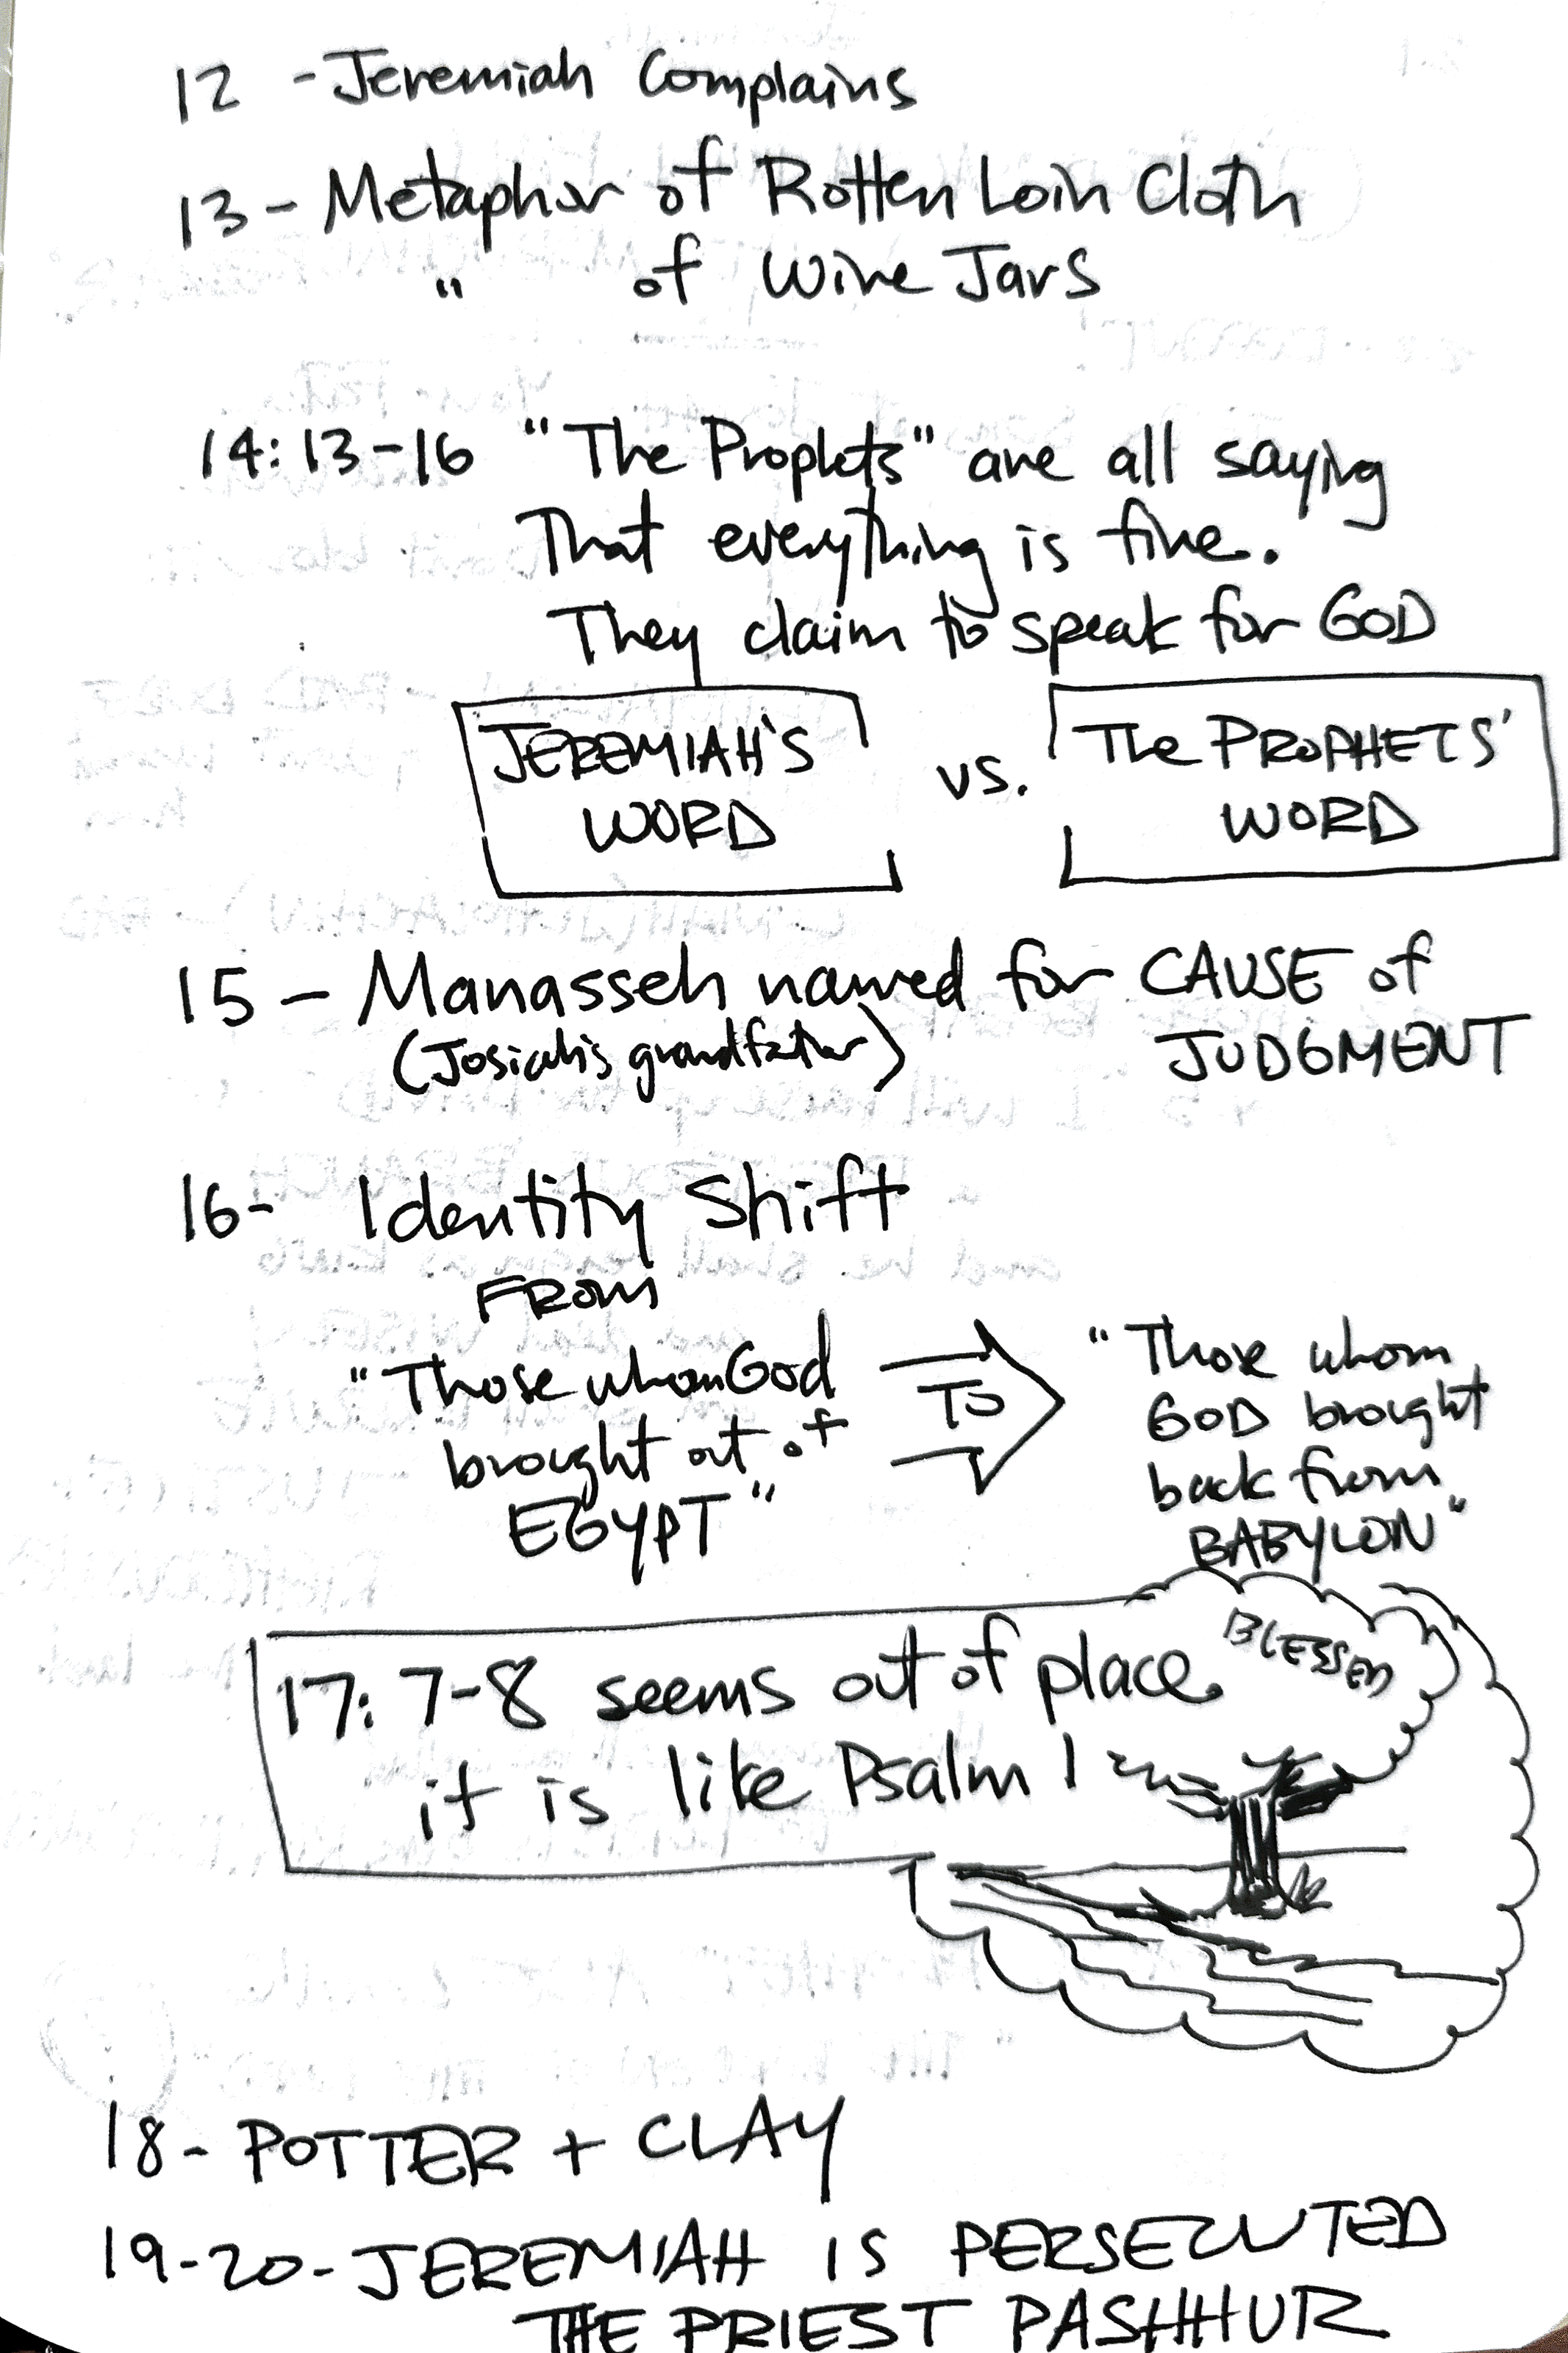 12 - Jeremiah Complains
13 - Metaphor of Rotten Loin Cloth
" of Wine Jars
14:13-16 "The Prophets" are all saying
That everything is fine.
They claim to speak for GOD
JEREMIAH'S
WORD
vs.
The PROPHETS'
WORD
15 - Manasseh named for CAUSE of
(Josiah's grandfather) JUDGMENT
16- Identity Shift
FROM
"Those whom God
brought out of
EGYPT"
TO
"Those whom
GOD brought
back from
BABYLON"
17:7-8 seems out of place.
it is like Psalm 1
BLESSED
18- POTTER + CLAY
19-20- JEREMIAH IS PERSECUTED
THE PRIEST PASHHUR